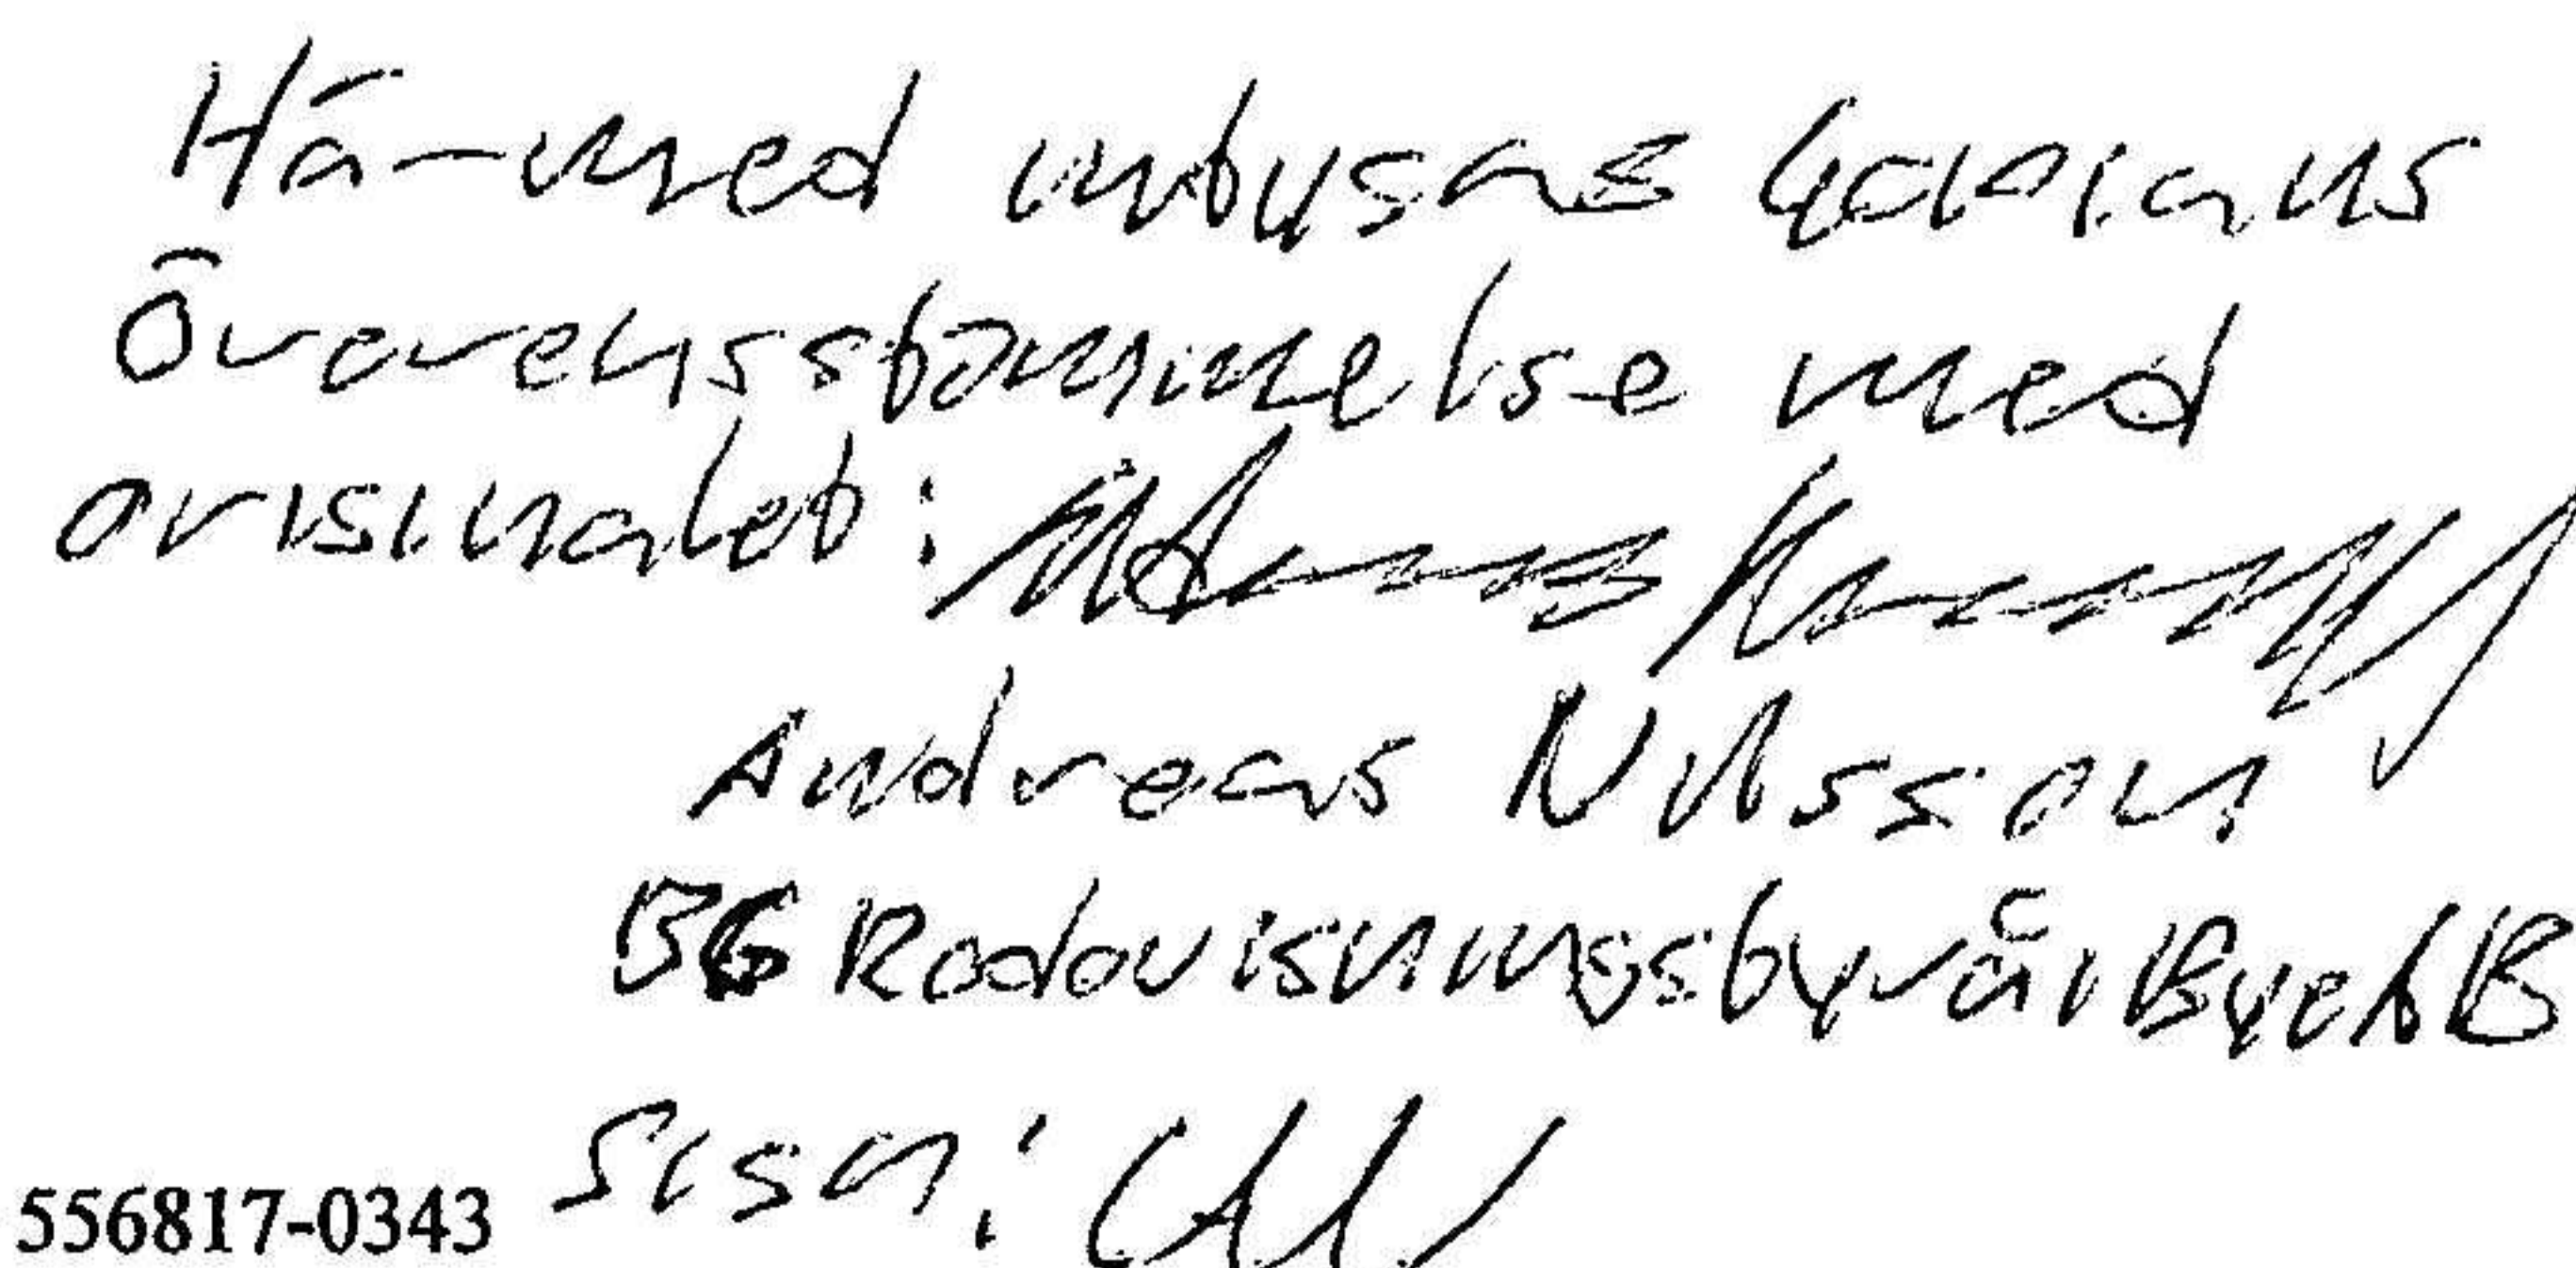 Härmed intygas kopians
överensstämmelse med
originalet:
Andreas Nilsson
BG Redovisningsbyrå i Bye AB
Sign:
556817-0343